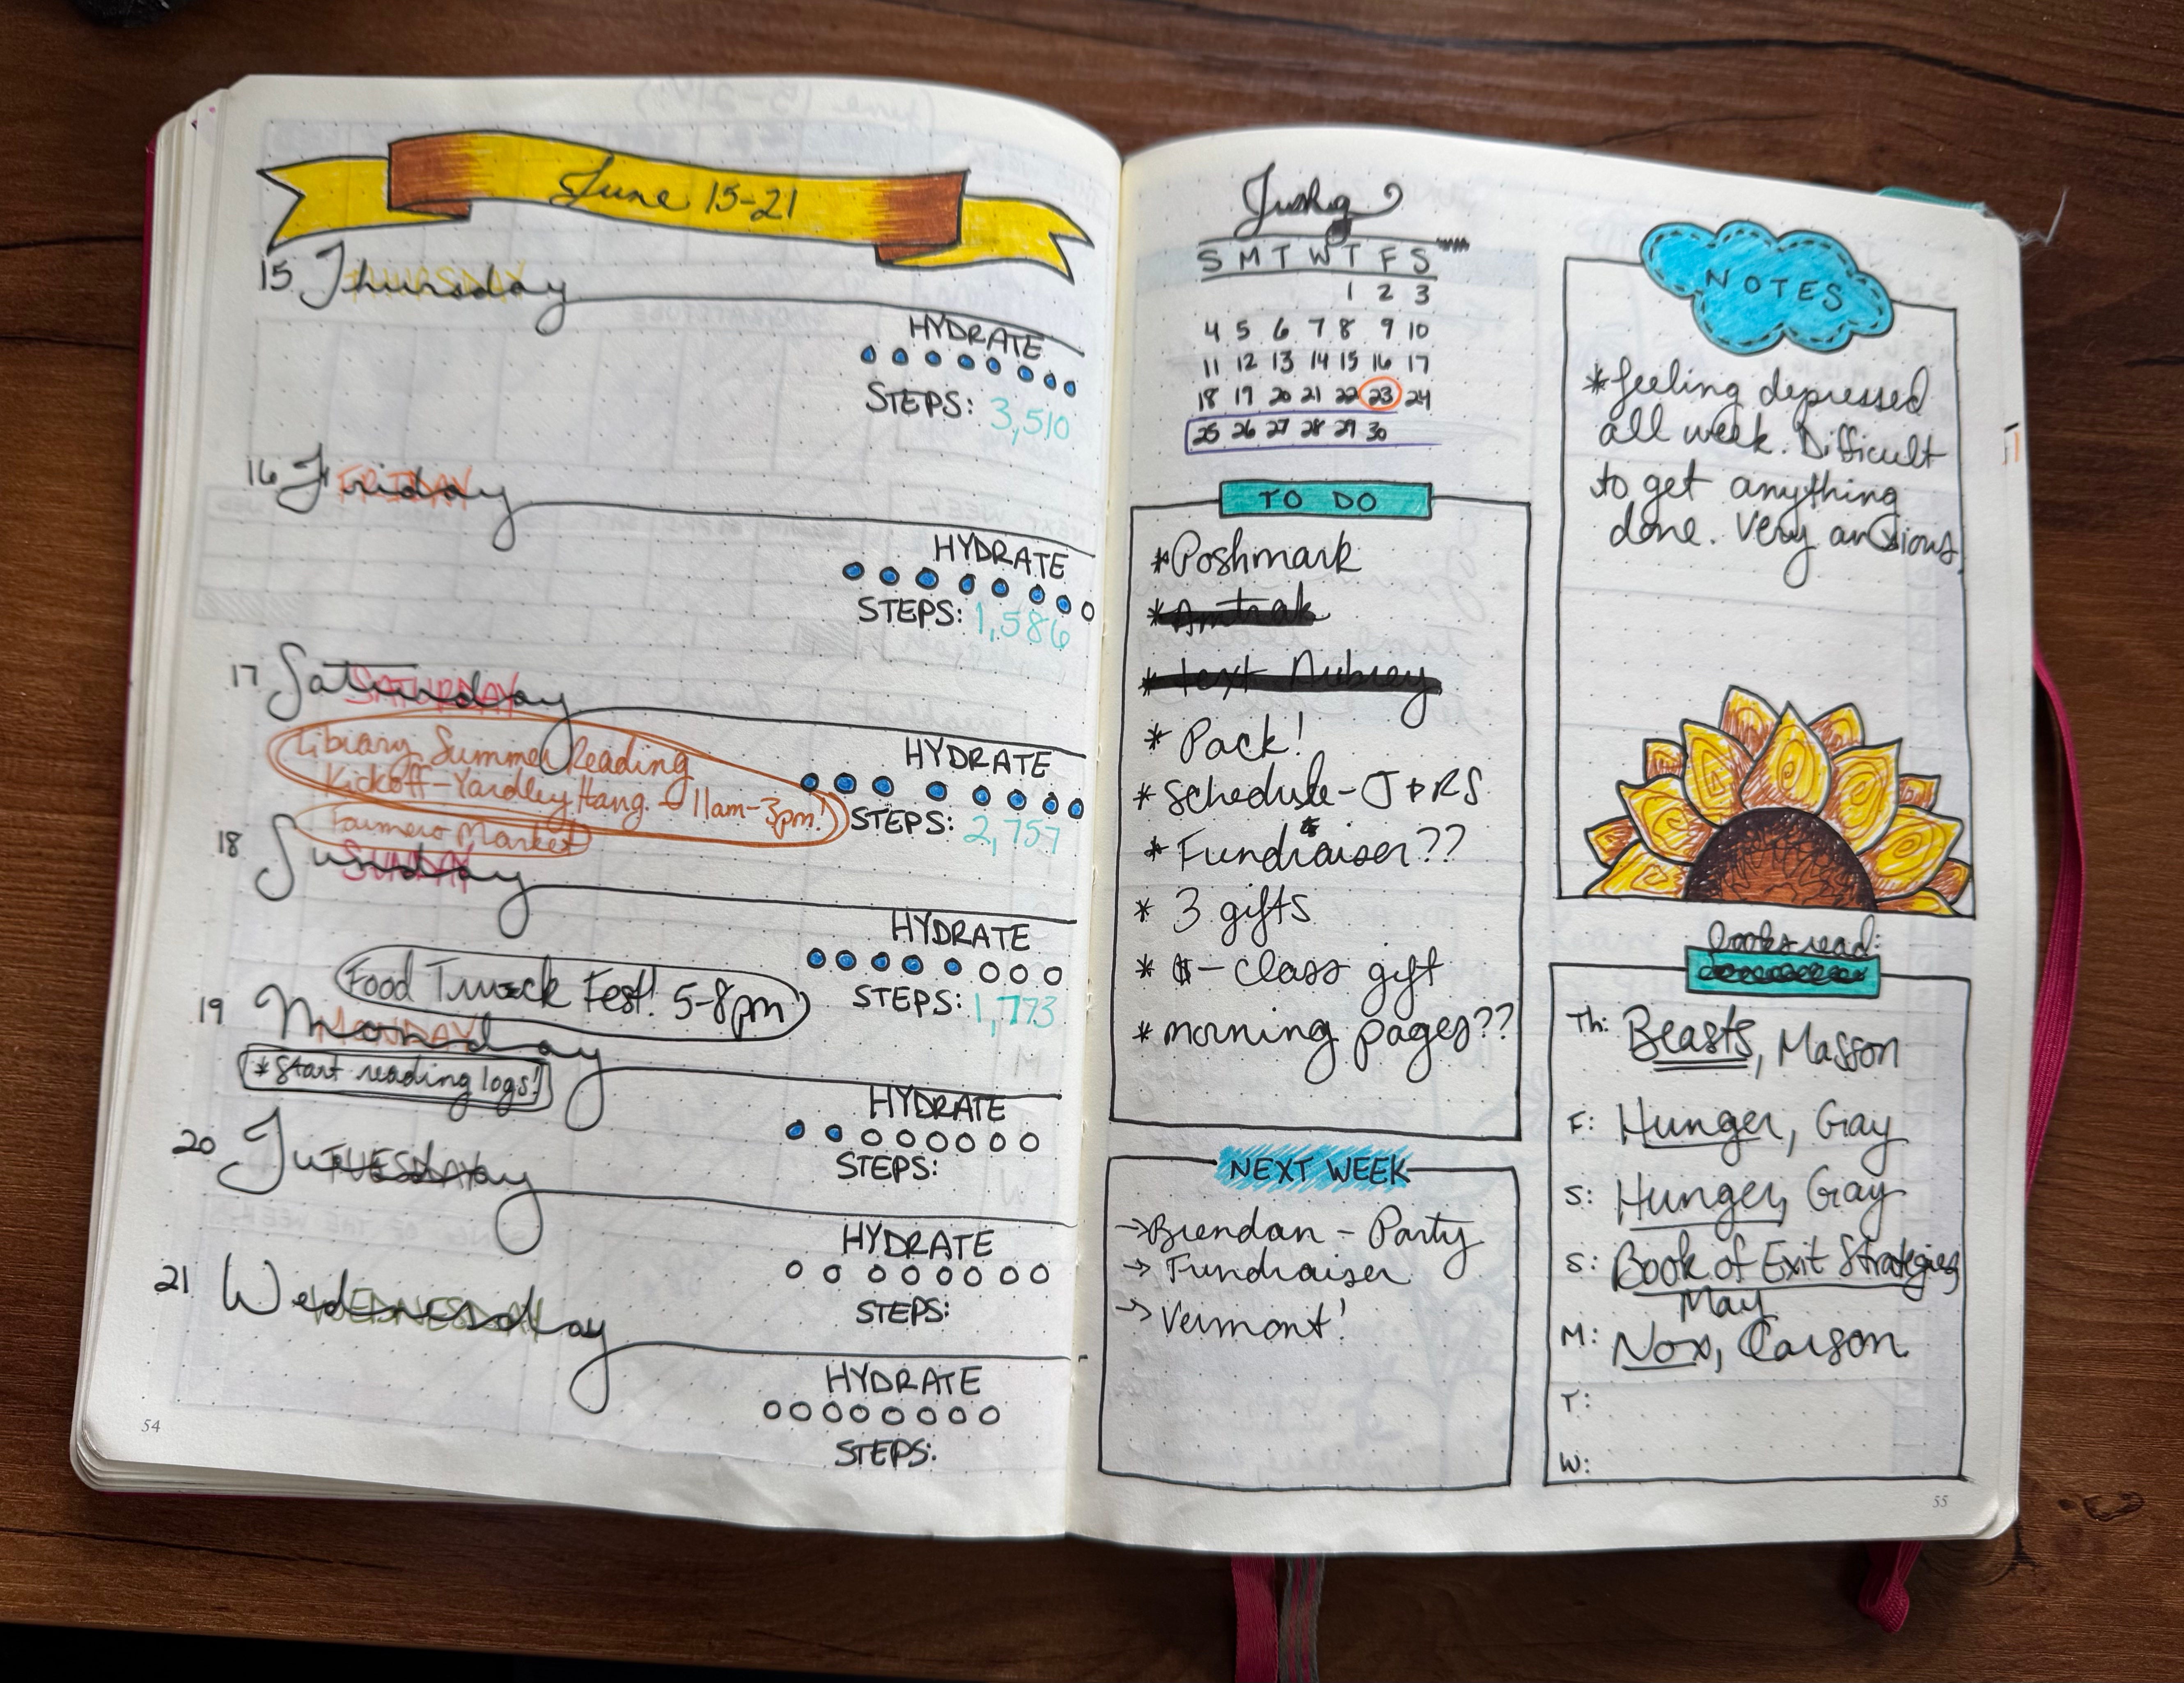 June 15-21
15 Thursday
THURSDAY
HYDRATE
STEPS: 3,510
16 Friday
FRIDAY
HYDRATE
STEPS: 1,586
17 Saturday
SATURDAY
Library Summer Reading
Kickoff-Yardley Hang. - 11am-3pm!
Farmers Market
HYDRATE
STEPS: 2,757
18 Sunday
SUNDAY
HYDRATE
STEPS: 1,773
Food Truck Fest! 5-8pm
19 Monday
MONDAY
*Start reading logs!
HYDRATE
STEPS:
20 Tuesday
TUESDAY
HYDRATE
STEPS:
21 Wednesday
WEDNESDAY
HYDRATE
STEPS:
54
S M T W T F S
1 2 3
4 5 6 7 8 9 10
11 12 13 14 15 16 17
18 19 20 21 22 23 24
25 26 27 28 29 30
TO DO
*Poshmark
*Amtrak
*text Aubrey
* Pack!
*Schedule-J+RS
*Fundraiser??
* 3 gifts
* $-class gift
*morning pages??
NEXT WEEK
→Brendan - Party
→ Fundraiser
→ Vermont!
NOTES
*feeling depressed
all week. Difficult
to get anything
done. Very anxious.
books read:
Th: Beasts, Masson
F: Hunger, Gay
S: Hunger, Gay
S: Book of Exit Strategies,
May
M: Nox, Carson
T:
W:
55